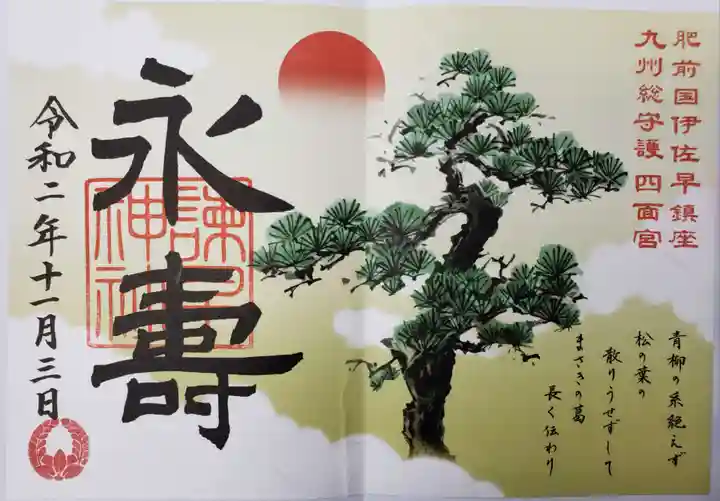 肥前国伊佐早鎮座
九州総守護 四面宮
青柳の糸絶えず
松の葉の
散りうせずして
まさきの葛
長く伝わり
永壽
諫早神社
令和二年十一月三日